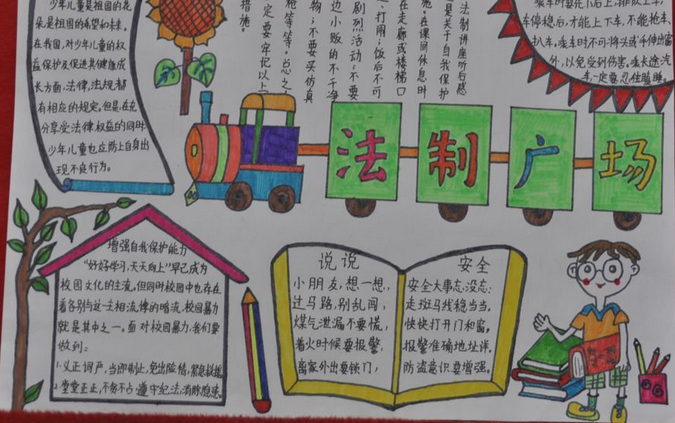 少年儿童是祖国的花
朵,是祖国的希望和未来。
在我国,对少年儿童的权
益保护及促进其健康成
长方面,法律,法规都
有相应的规定。但是,在充
分享受法律权益的同时
少年儿童也应防止自身出
现不良行为。
措施。
定要牢记以上
枪等等。总之
物;不要买仿真
边小贩的不干净
剧烈活动;不要
打闹;饭后不可
在走廊或楼梯口
施。在课间休息时
是关于自我保护
法制讲座听后感
车停稳后,才能上下车,不能抢车、
扒车,乘车时不可将头或手伸出窗
外,以免受到伤害。乘长途汽
车一定要忍住瞌睡。
法制广场
增强自我保护能力
“好好学习,天天向上”早已成为
校园文化的主流,但同时校园中也存在
着各别与这一主相流悖的暗流,校园暴力
就是其中之一。面对校园暴力,我们要
做到:
1.义正词严,当即制止,免出险情,紧急救援。
2.堂堂正正,不贪不占遵守纪法,消除隐患。
说说
小朋友,想一想,
过马路,别乱闯,
煤气泄漏不要慌,
着火时候要报警,
离家外出要锁门,
安全
安全大事忘没忘:
走斑马线稳当当。
快快打开门和窗。
报警准确地址详。
防盗意识要增强。